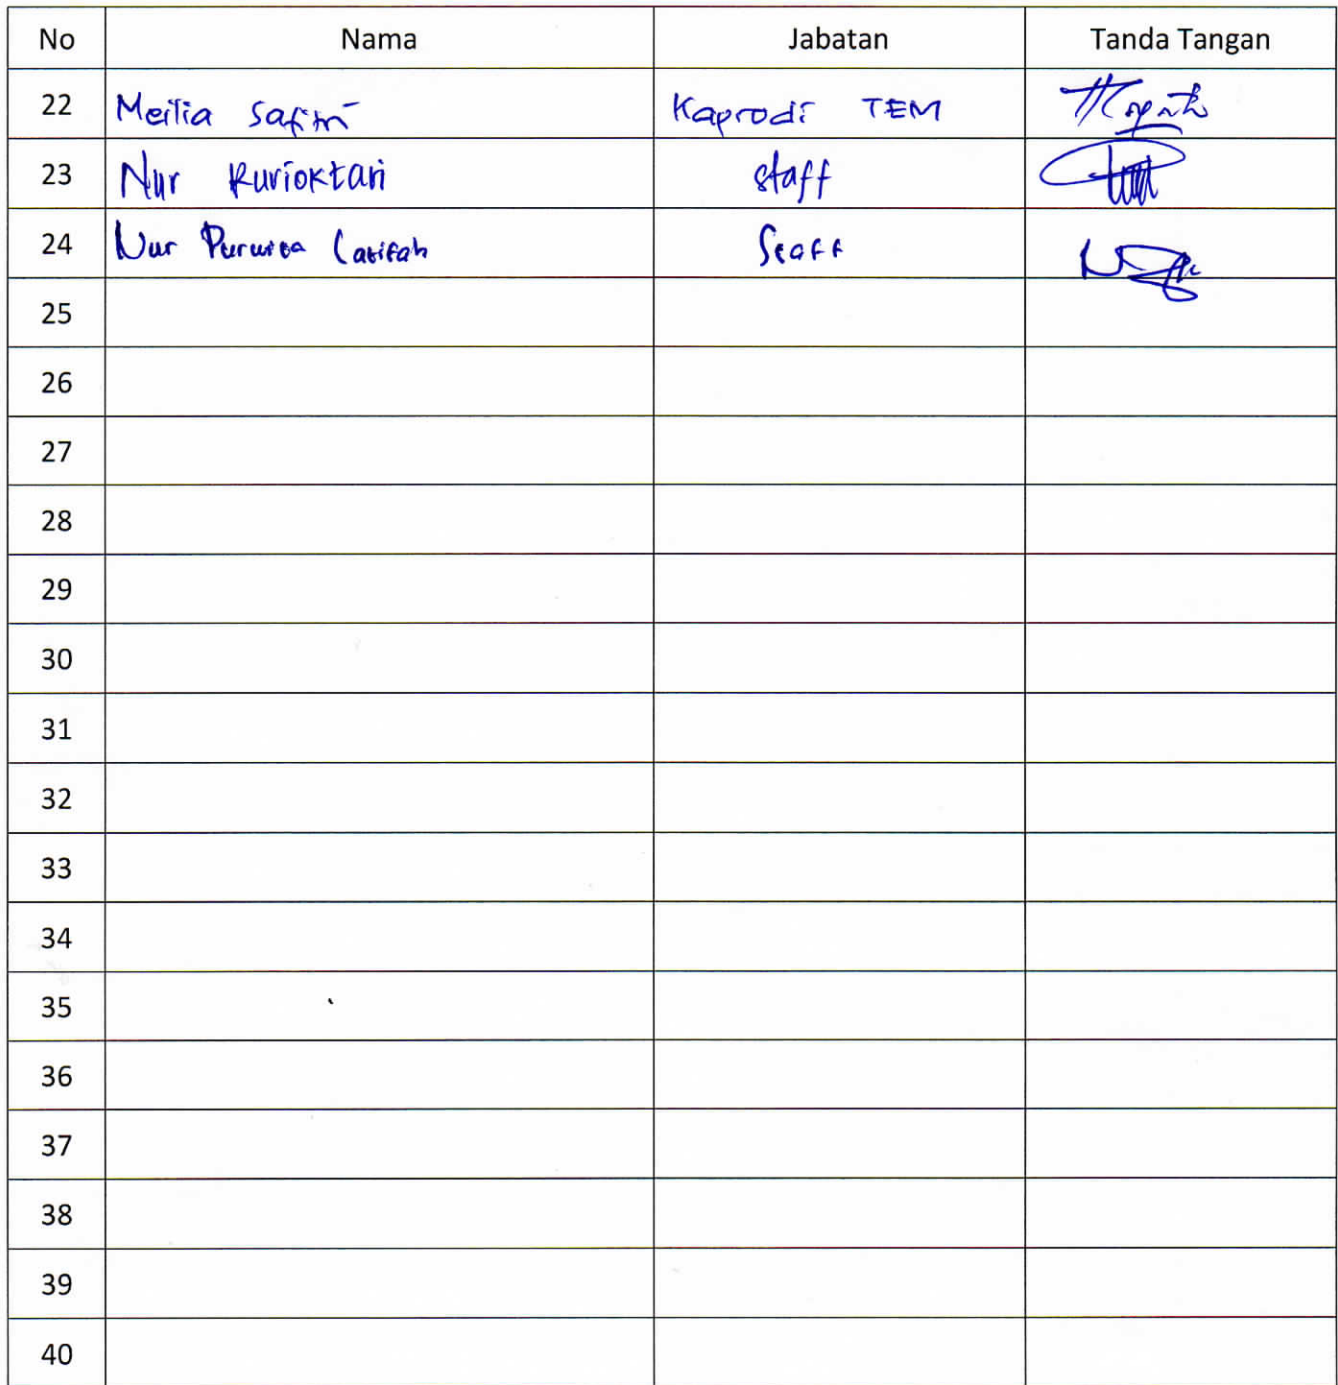 No Nama Jabatan Tanda Tangan
22 Meilia Safitri Kaprodi TEM
23 Nur Kurioktari staff
24 Nur Purwita Latifah Staff
25
26
27
28
29
30
31
32
33
34
35
36
37
38
39
40